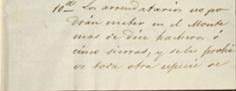 10ª Los arrendatarios no po
drán meter en el Monte
mas de diez hacheros ó
cinco sierras, y se les prohi
ve toda otra especie de